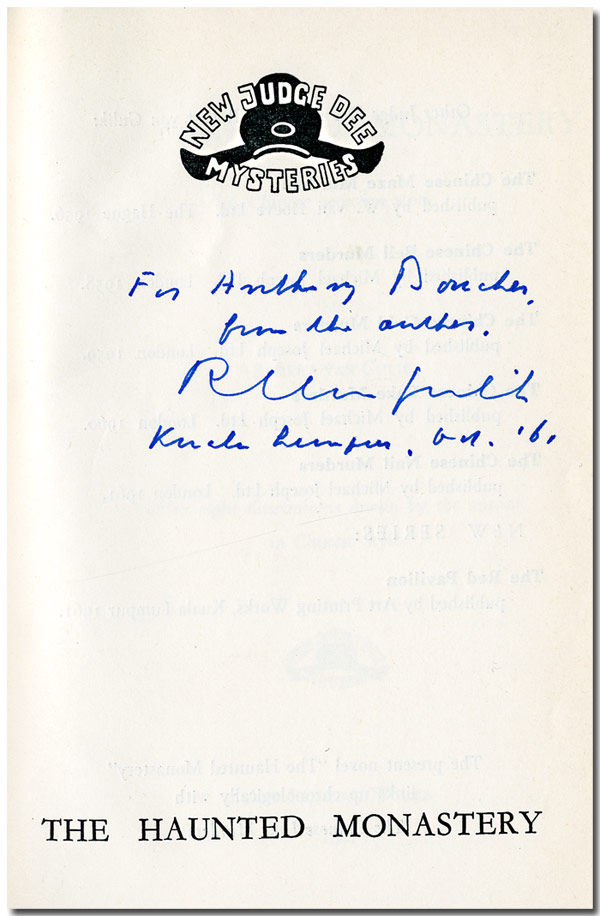 NEW JUDGE DEE
MYSTERIES
For Anthony Boucher,
from the author.
RHvanGulik
Kuala Lumpur, Oct. '61
THE HAUNTED MONASTERY